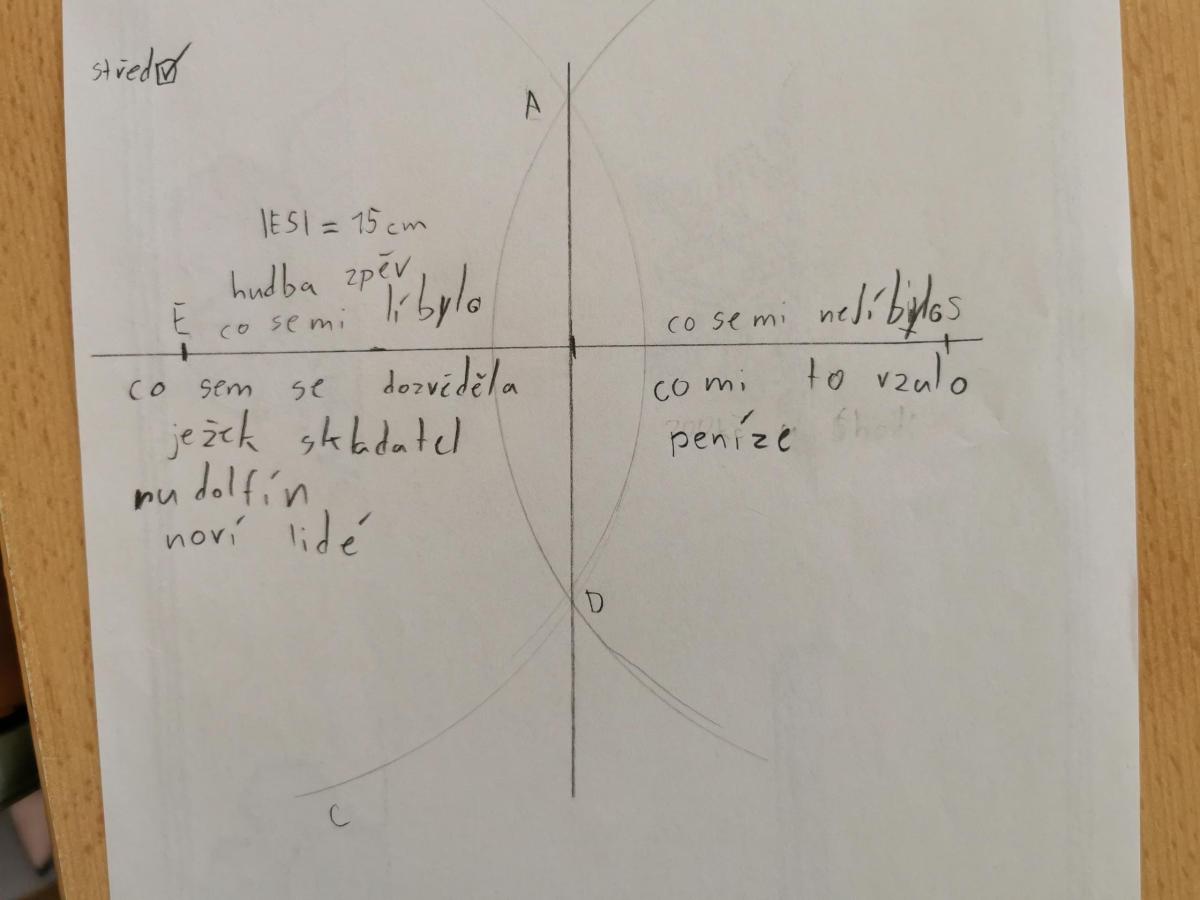 střed
A
|ES| = 15 cm
hudba zpěv
E co se mi líbylo
co se mi nelíbylo S
co sem se dozvěděla
ježek skladatel
rudolfín
noví lidé
co mi to vzalo
peníze
D
C